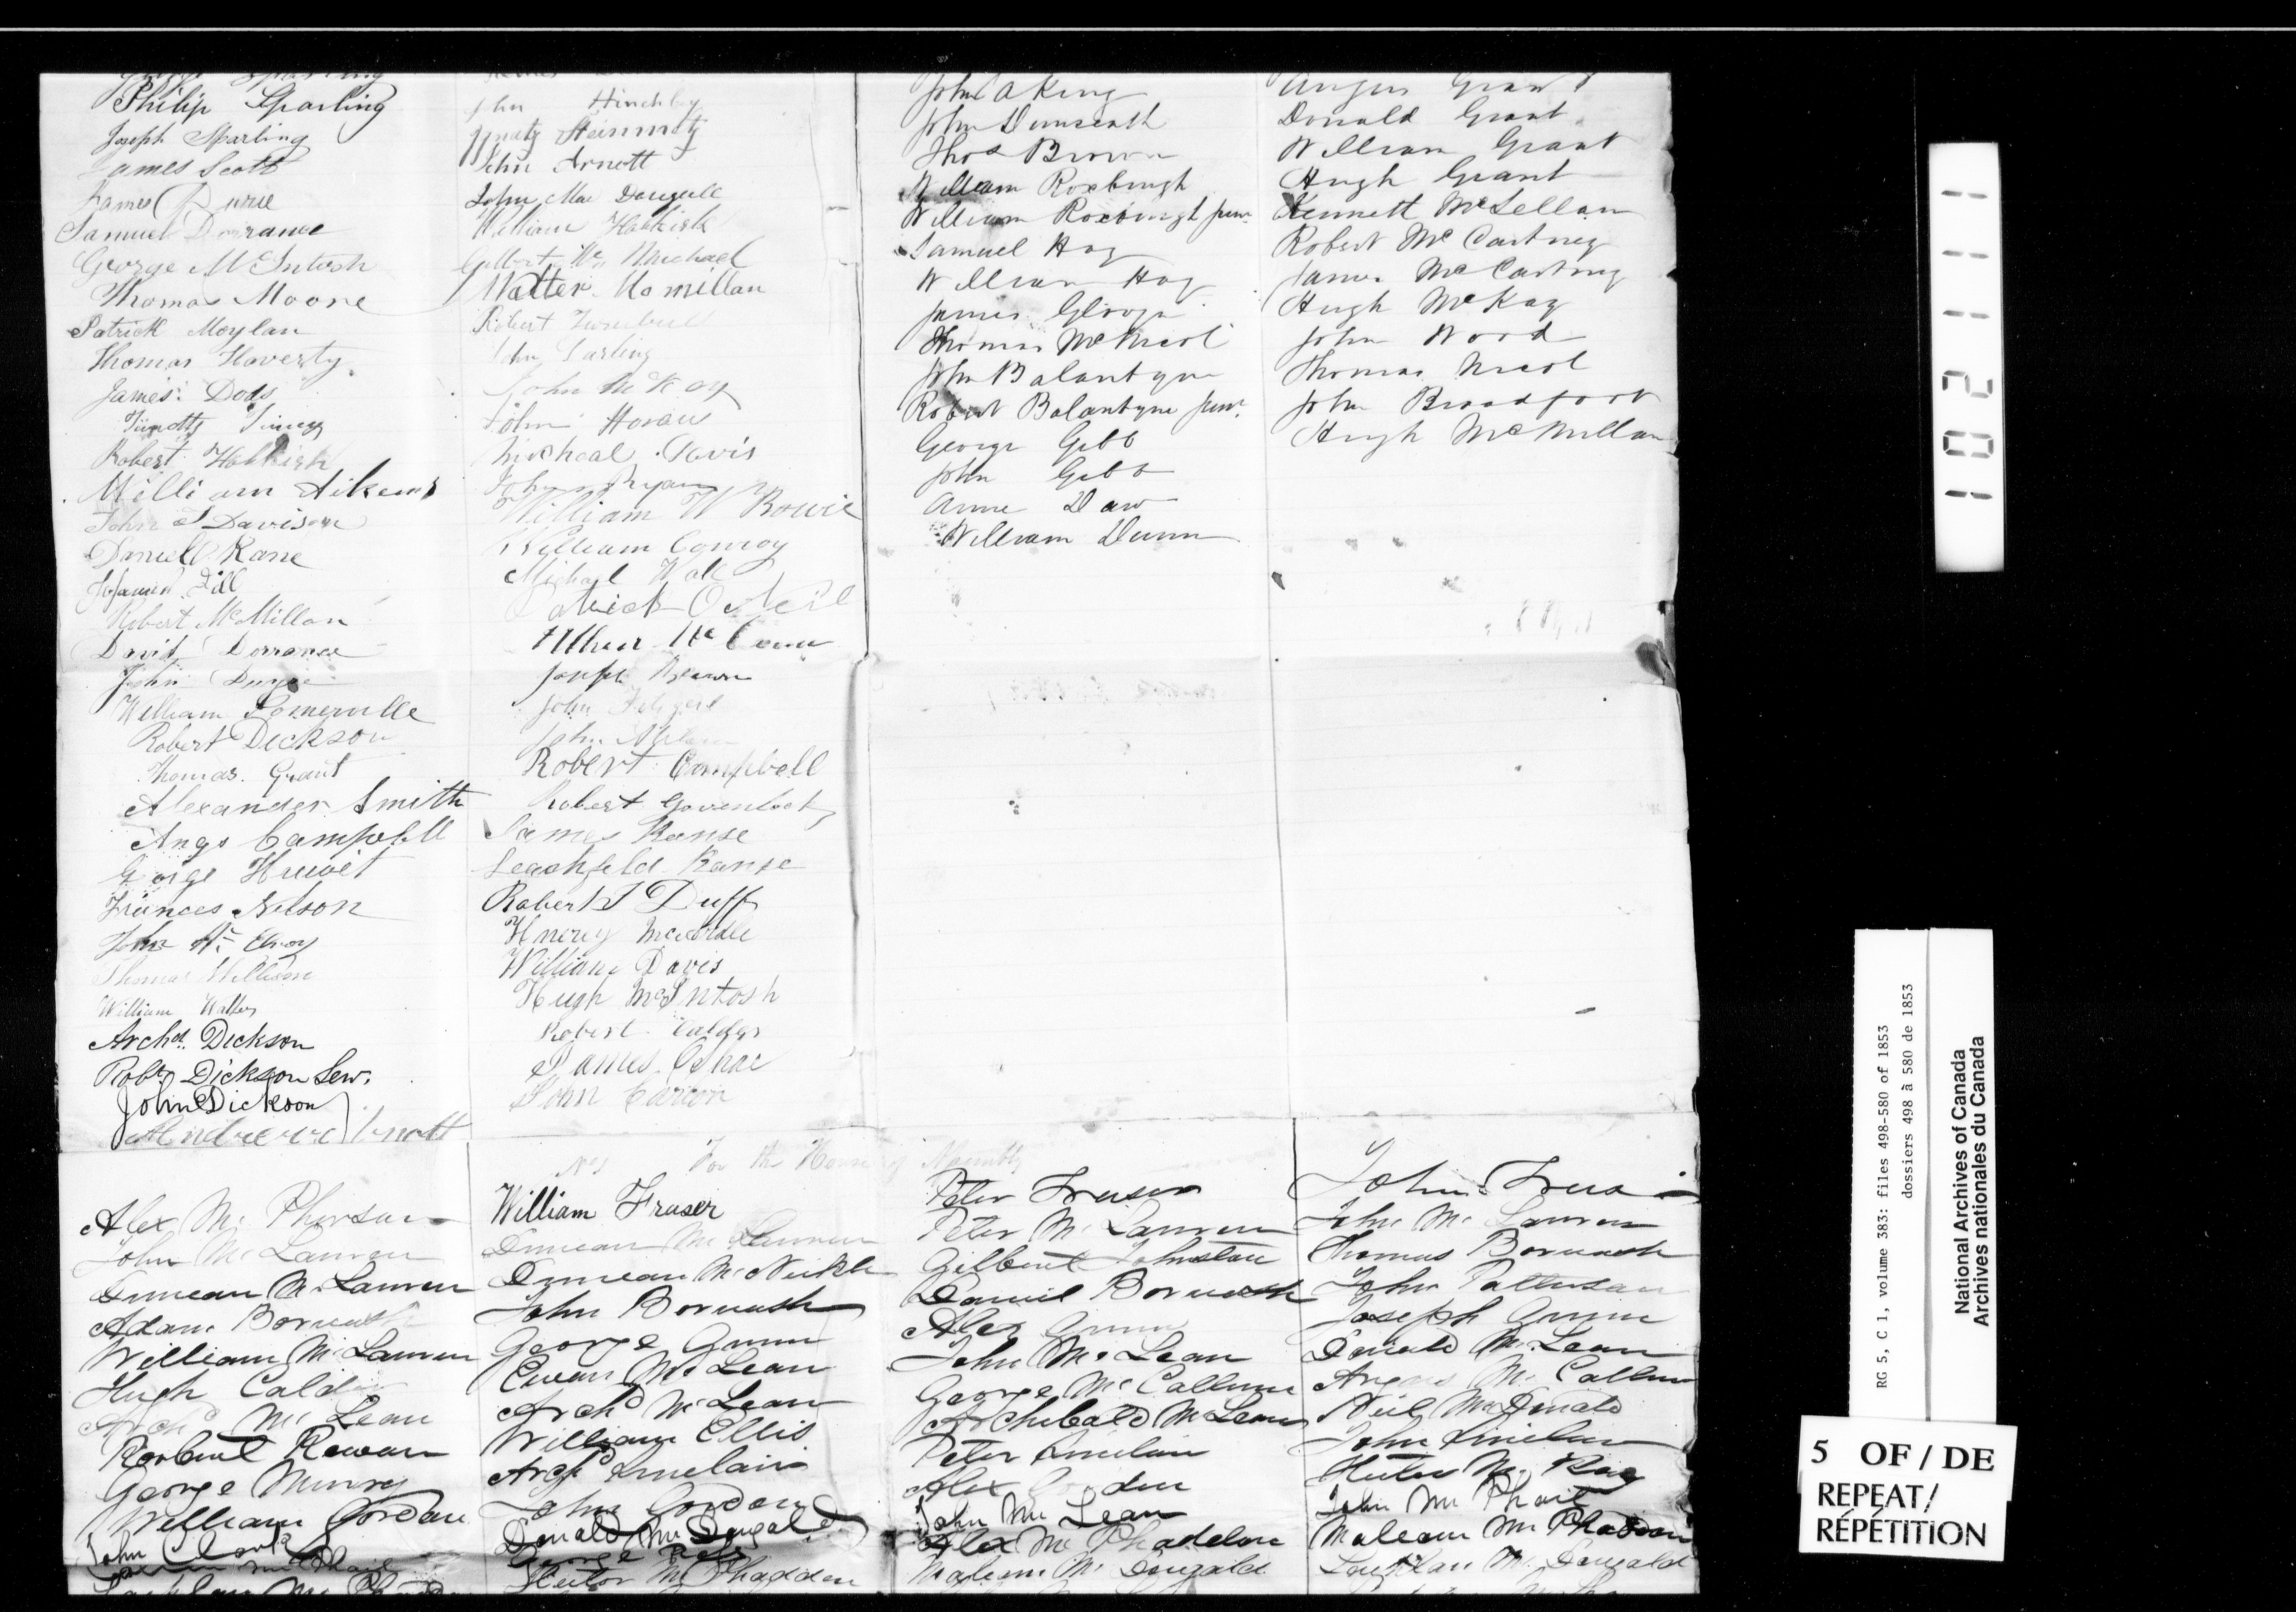 Philip Sparling
Joseph Sparling
James Scott
James Durie
Samuel Dorrance
George McIntosh
Thomas Moore
Patrick Moylan
Thomas Haverty
James Dods
Robert Habkirk
William Aikens
John S Davison
Daniel Kane
Hill
Robert McMillan
David Dorrance
John
William Somerville
Robert Dickson
Thomas Grant
Alexander Smith
Angs Campbell
George
Frances Nelson
John Mc Elroy
Thomas
William Walker
Archd. Dickson
Robt. Dickson Sen.
John Dickson
Andrew Knott
John Hinchley
Steinmetz
John Arnott
John Mac Dougall
William Habkirk
Gilbert Mc Michael
Walter
Robert Turnbull
John Darling
John McKay
John Horan
Davis
John Ryan
William W Bowie
William Conroy
Michael Wall
Patrick O Neil
Joseph Brown
John
John
Robert Campbell
Robert Govenlock
James Kanse
Leashfeld Kanse
Robert T Duff
William Davis
Hugh McIntosh
Robert Calder
James OShae
John Carron
John A King
John Dunseath
Thos Brown
William Roxburgh
William Roxburgh Junr
Samuel Hog
William Hog
James
Thomas McNicol
John Balantyne
Robert Balantyne Junr.
George Gibb
John Gibb
Anne Daw
William Dunn
Angus Grant
Donald Grant
William Grant
Hugh Grant
Kennett McLellan
Robert McCartney
James McCartney
Hugh McKay
John Wood
Thomas Nicol
John Broadfoot
Hugh McMillan
For the House of Assembly
Alex Mc Pherson
John Mc Lauren
Duncan McLauren
Adam Borwash
William McLauren
Hugh Calder
Archd Mc Lean
Robert Rowan
George Murray
William Gordon
John Clark
William Fraser
Duncan Mc Lauren
Duncan McNickle
John Borwash
George Gunn
Ewan McLean
Archd McLean
William Ellis
Archd Sinclair
John Gordon
Donald Mc Dougald
George Ross
Hector McPhadden
Peter Fraser
Peter Mc Lauren
Gilbert Johnston
Daniel Borwash
Alex Gunn
John McLean
George McCallum
Archibald McLean
Peter Sinclair
Alex Gordon
John Mc Lean
Alex Mc Phadden
Malcom Mc Dougald
John Fraser
John Mc Lauren
Thomas Borwash
John Patterson
Joseph Gunn
Donald McLean
Angus Mc Callum
Neil McDonald
John Sinclair
John Mc Phail
Malcom Mc Phadden
Lauchlan Mc Dougald
102111
RG 5, C 1, volume 383: files 498-580 of 1853
dossiers 498 à 580 de 1853
National Archives of Canada
Archives nationales du Canada
5 OF / DE
REPEAT/
RÉPÉTITION